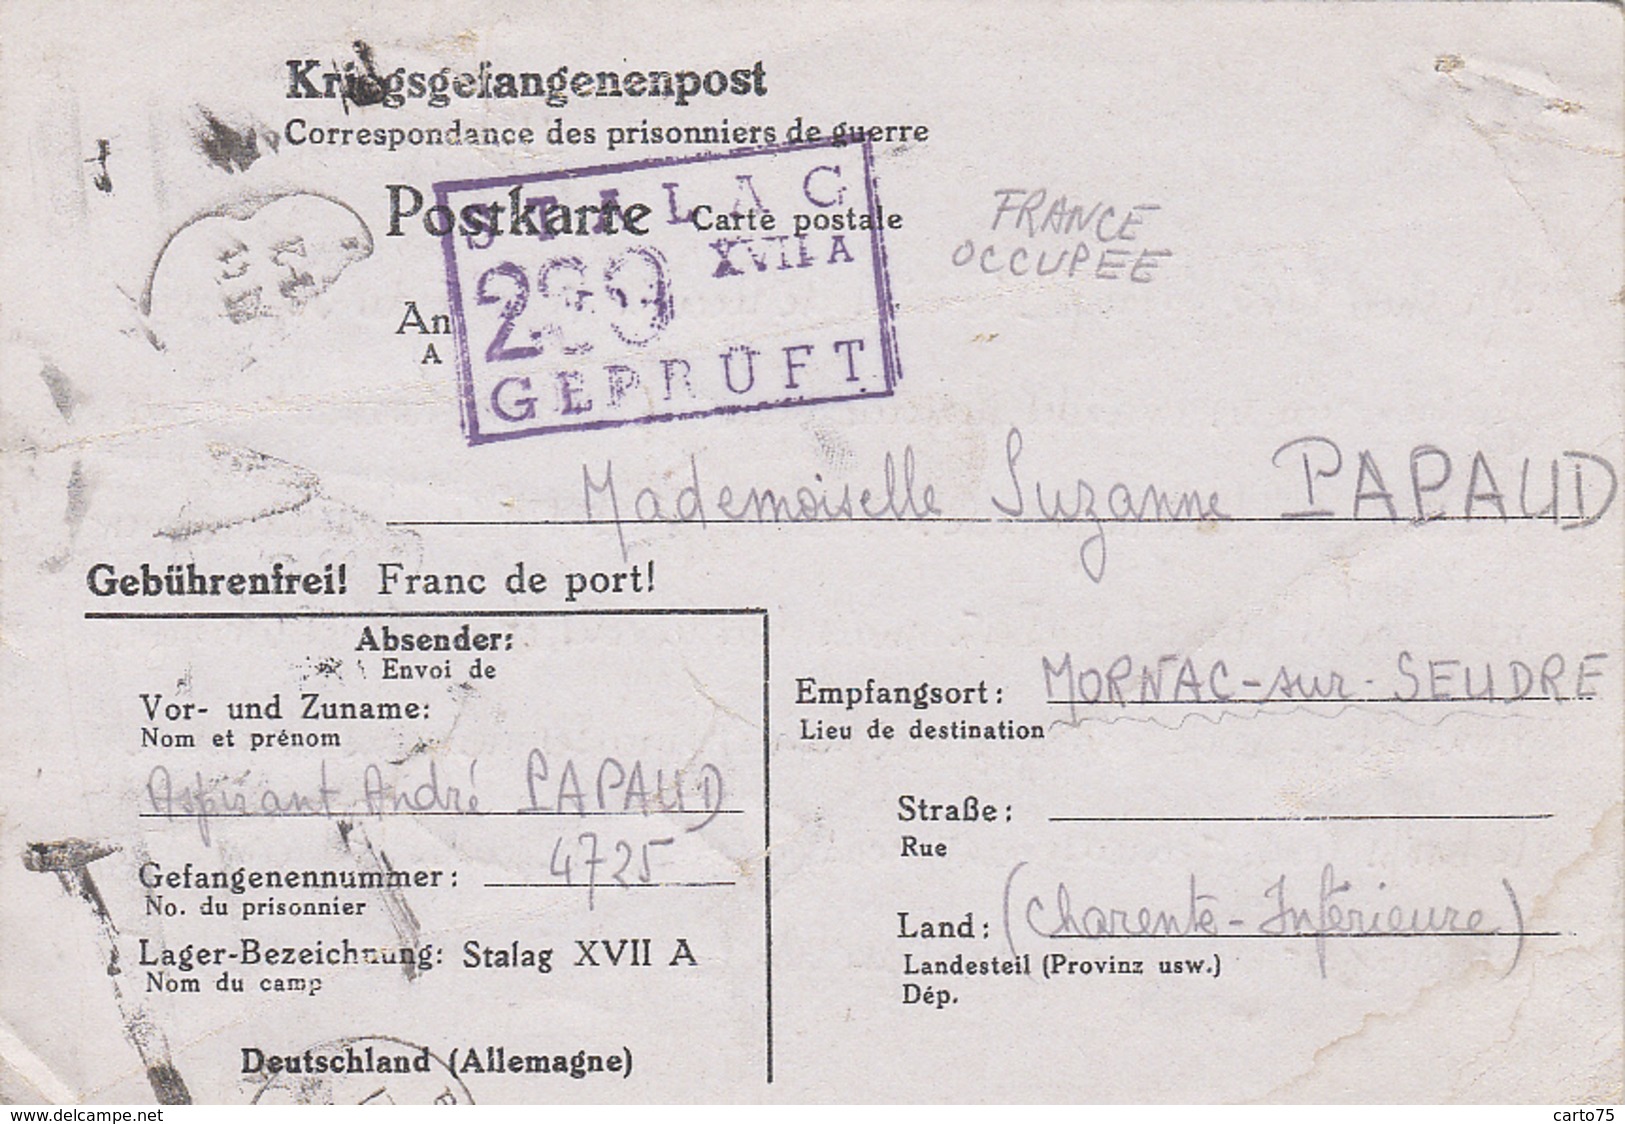 Kriegsgefangenenpost
Correspondance des prisonniers de guerre
Postkarte Carte postale
STALAG
XVII A
GEPRÜFT
FRANCE
OCCUPÉE
An
A
Mademoiselle Suzanne PAPAUD
Gebührenfrei! Franc de port!
Absender:
Envoi de
Vor- und Zuname:
Nom et prénom
Aspirant André PAPAUD
Gefangenennummer: 4725
No. du prisonnier
Lager-Bezeichnung: Stalag XVII A
Nom du camp
Deutschland (Allemagne)
Empfangsort: MORNAC-sur-SEUDRE
Lieu de destination
Straße:
Rue
Land: (Charente-Inférieure)
Landesteil (Provinz usw.)
Dép.
www.delcampe.net
carto75